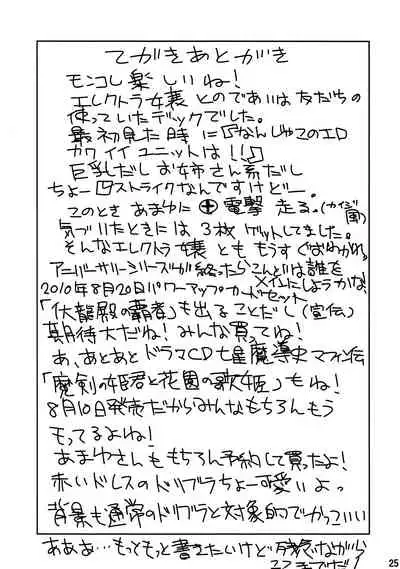 てがきあとがき
モンコレ楽しいね！
エレクトラ嬢とのであいは友だちの
使っていたデックでした。
最初見た時に『なんじゃこのエロ
カワイイユニットは!!』
巨乳だしお姉さん系だし
ちょーストライクなんですけどー。
このときあまゆに電撃走る。(カイジ風)
気づいたときには3枚ゲットしてました。
そんなエレクトラ嬢とももうすぐおわかれ。
アニバーサリーシリーズが終ったらこんどは誰を
メインにしようかな
2010年8月20日パワーアップカードセット
「伏龍殿の覇者」も出ることだし(宣伝)
期待大だね！みんな買ってね！
あ、あとあとドラマCD七星魔導史マフィン伝
「魔剣の姫君と花園の歌姫」もね！
8月10日発売だからみんなもちろんもう
モってるよね！
あまゆさんももちろん予約して買ったよ！
赤いドレスのドリブラちょー可愛いよっ
背景も通常のドリブラと対象的でかっこいい
あああ…もっともっと書きたいけど残念ながら
ここまでだ！
25